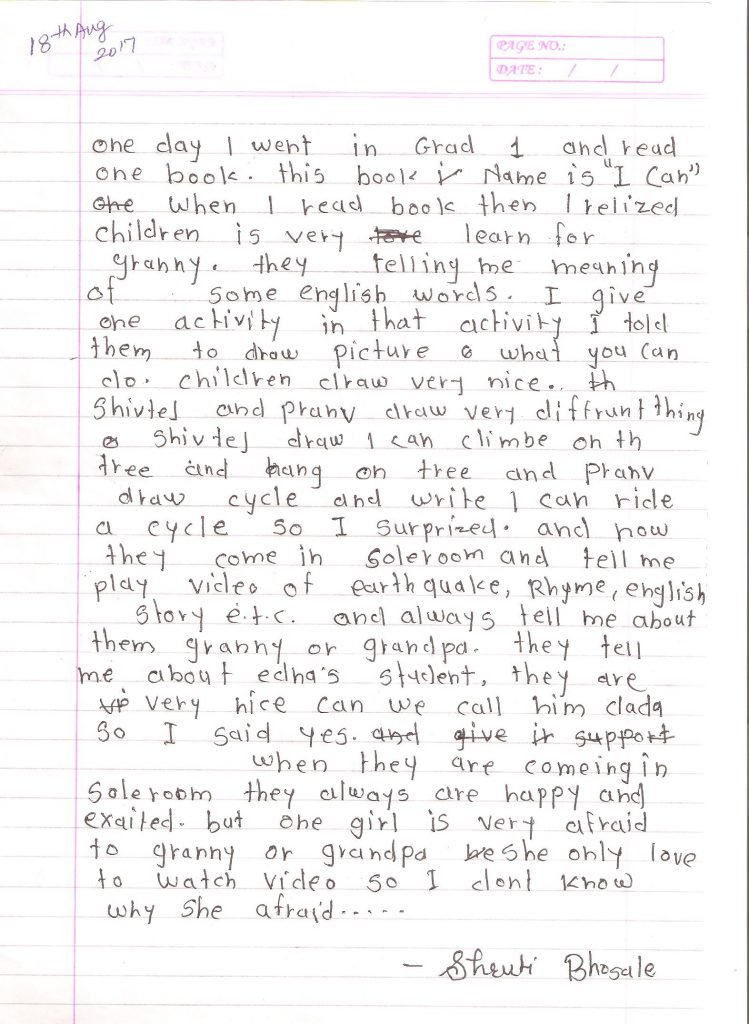 18th Aug
2017
PAGE NO.:
DATE: / /
one day I went in Grad 1 and read
one book. this book is Name is "I Can"
One When I read book then I relized
children is very love learn for
granny. they telling me meaning
of some english words. I give
one activity in that activity I told
them to draw picture o what you can
do. children draw very nice.. th
Shivtej and pranv draw very diffrunt thing
a Shivtej draw I can climbe on th
tree and hang on tree and pranv
draw cycle and write I can ride
a cycle so I surprized. and now
they come in soleroom and tell me
play video of earthquake, Rhyme, english
story e.t.c. and always tell me about
them granny or grandpa. they tell
me about edna's student, they are
very nice can we call him dada
So I said yes. and give it support
when they are comeing in
Soleroom they always are happy and
exaited. but one girl is very afraid
to granny or grandpa she only love
to watch video so I dont know
why she afraid.....
- Shruti Bhosale